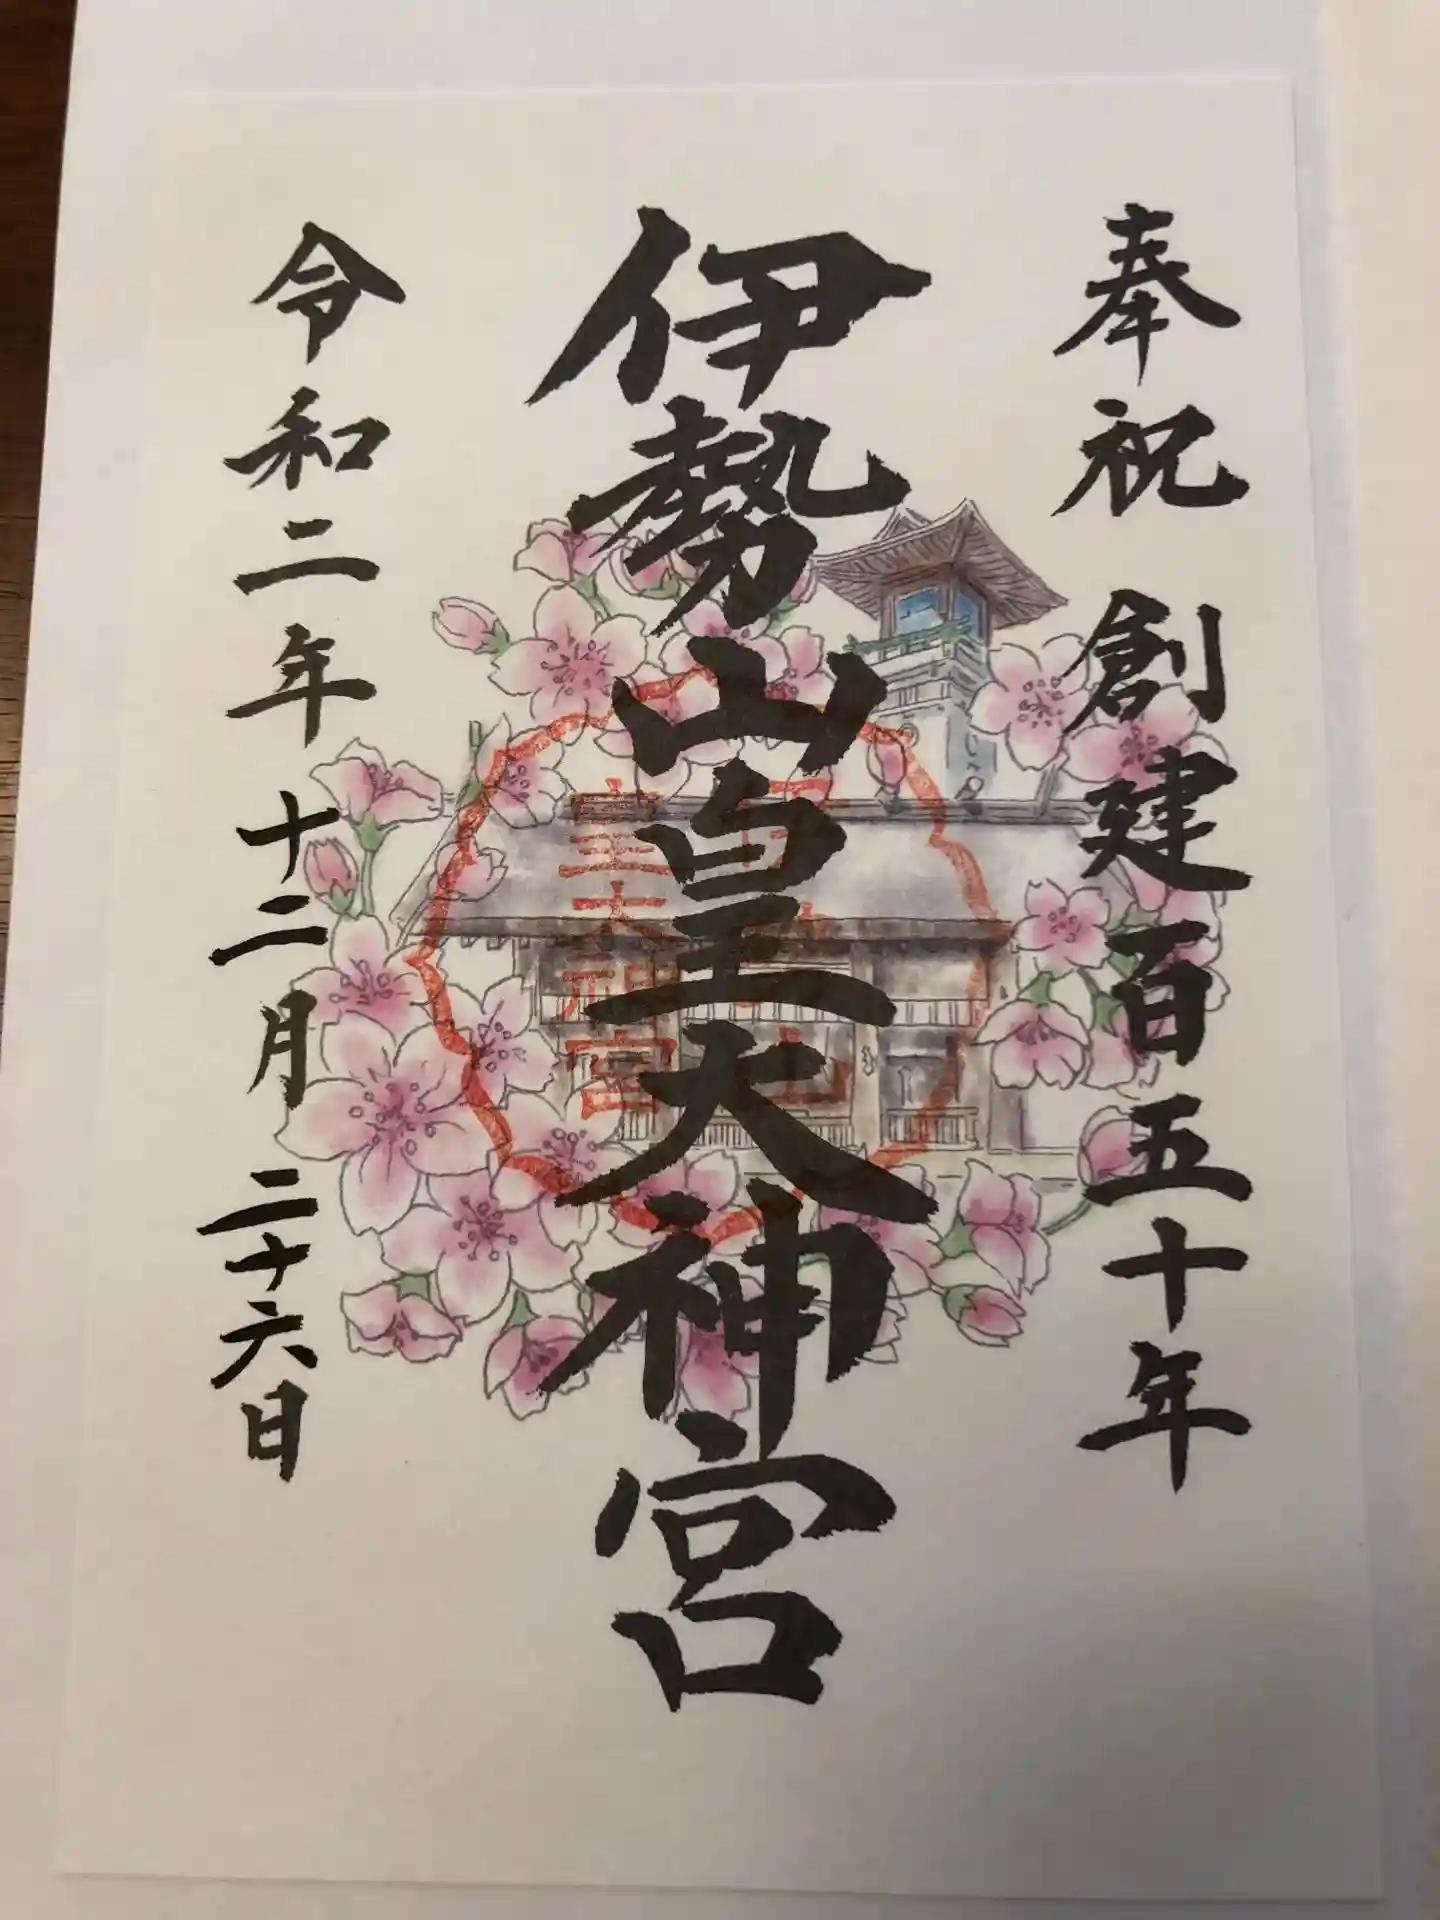 奉祝 創建百五十年
伊勢山皇大神宮
令和二年十二月二十六日
皇大神宮